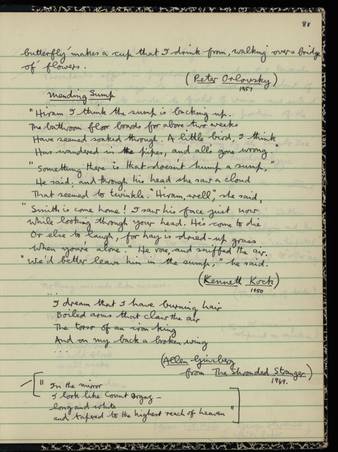 88
butterfly makes a cup that I drink from, walking over a bridge
of flowers.
(Peter Orlovsky)
1957
Mending Sump
"Hiram I think the sump is backing up.
The bathroom floor boards for above two weeks
Have seemed soaked through. A little bird, I think
Has wandered in the pipes, and all's gone wrong."
"Something there is that doesn't hump a sump,"
He said, and through his head she saw a cloud
That seemed to twinkle. "Hiram, well," she said,
"Smith is come home! I saw his face just now
While looking through your head. He's come to die
Or else to laugh, for hay is dried-up grass
When you're alone." He rose, and sniffed the air.
"We'd better leave him in the sump," he said.
(Kenneth Koch)
1950
...
I dream that I have burning hair
Boiled arms that claw the air
The torso of an iron king
And on my back a broken wing
...
(Allen Ginsberg
from The Shrouded Stranger)
1949.
["In the mirror
I look like Count
long and white
and tapered to the highest reach of heaven"]